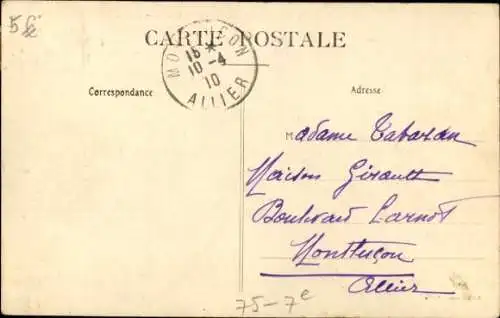 56
CARTE POSTALE
MONTLUÇON
15 *
10 -4
10
ALLIER
Correspondance
Adresse
Madame Tabaran
Maison Girault
Boulevard Carnot
Montluçon
Allier
75-7e